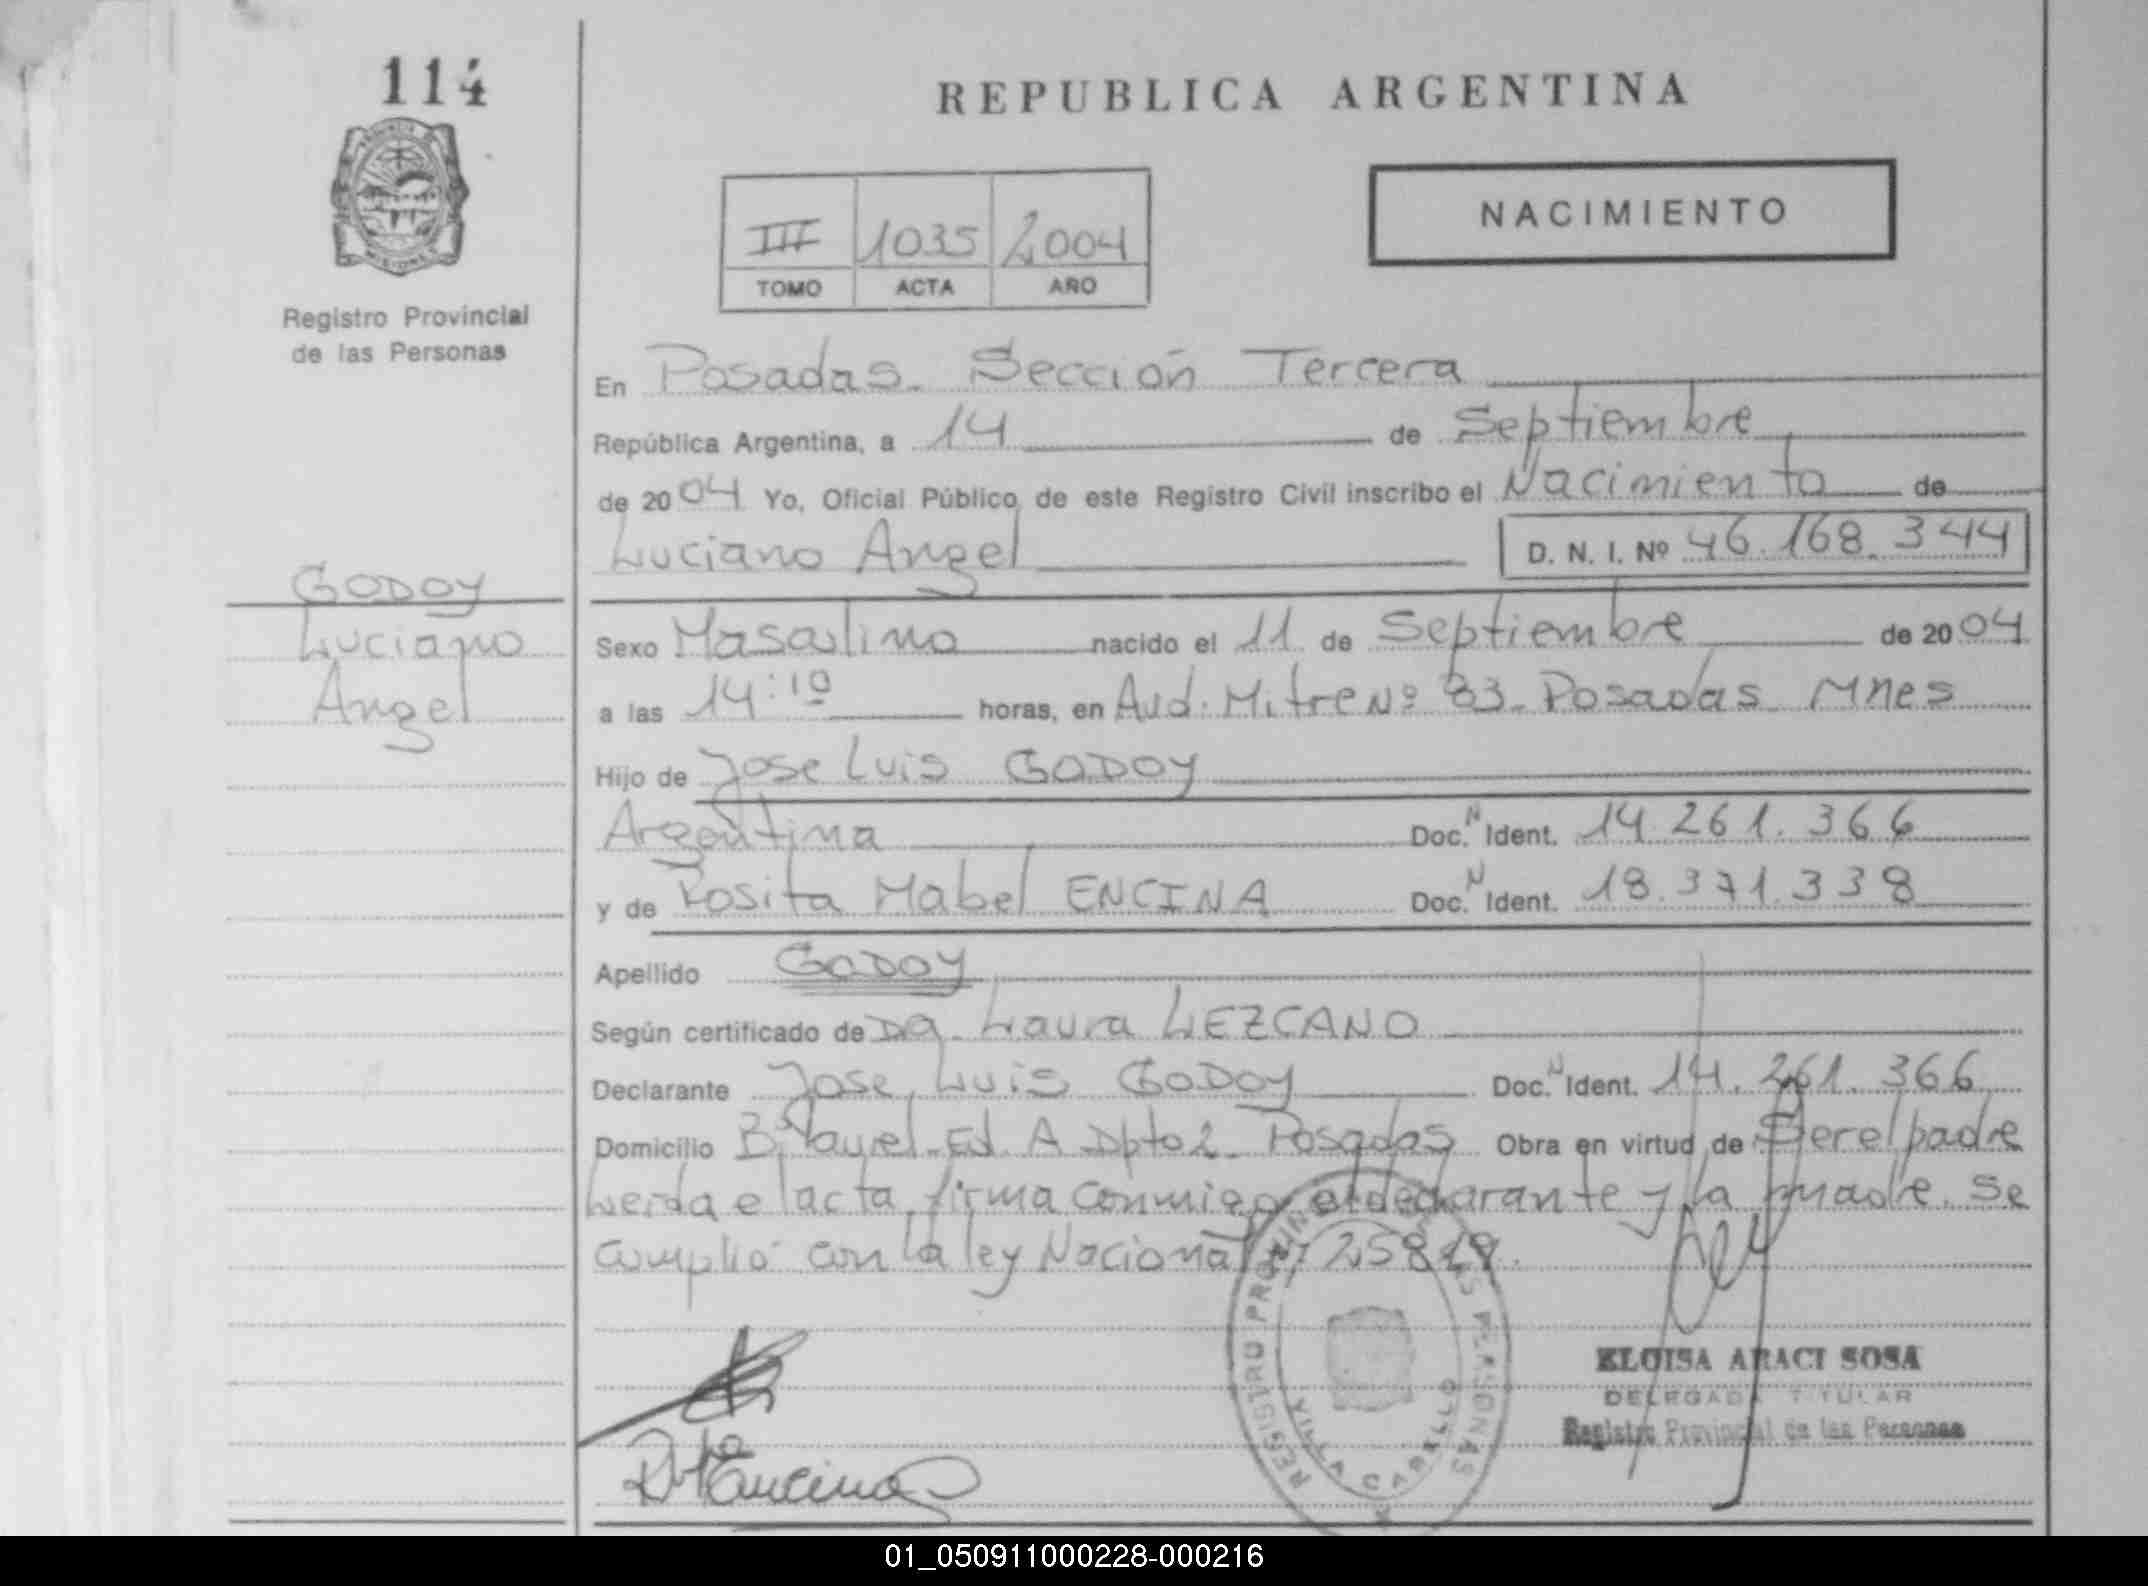 114
REPUBLICA ARGENTINA
NACIMIENTO
III 1035 2004
TOMO ACTA AÑO
Registro Provincial
de las Personas
En Posadas. Sección Tercera
República Argentina, a 14 de Septiembre
de 2004 Yo, Oficial Público de este Registro Civil inscribo el Nacimiento de
Luciano Angel D. N. I. Nº 46.168.344
GODOY
Luciano
Angel
Sexo Masculino nacido el 11 de Septiembre de 2004
a las 14:10 horas, en Avd. Mitre Nº 83. Posadas Mnes
Hijo de Jose Luis GODOY
Argentina Doc. N Ident. 14.261.366
y de Rosita Mabel ENCINA Doc. N Ident. 18.371.338
Apellido GODOY
Según certificado de Dª. Laura LEZCANO
Declarante Jose Luis GODOY Doc. N Ident. 14.261.366
Domicilio Bº Ed. A Dpto 2. Posadas Obra en virtud de Ser el padre
Leida el acta, firma conmigo el declarante y la madre. Se
cumplió con la ley Nacional
REGISTRO PROVINCIAL DE LAS PERSONAS
VILLA CABELLO
ELOISA ARACI SOSA
DELEGADA TITULAR
Registro Provincial de las Personas
Encina
01_050911000228-000216